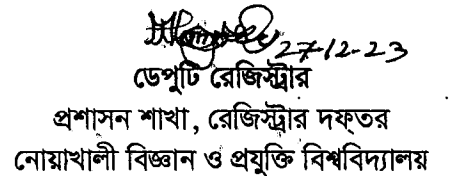 27-12-23
ডেপুটি রেজিস্ট্রার
প্রশাসন শাখা, রেজিস্ট্রার দফ্তর
নোয়াখালী বিজ্ঞান ও প্রযুক্তি বিশ্ববিদ্যালয়